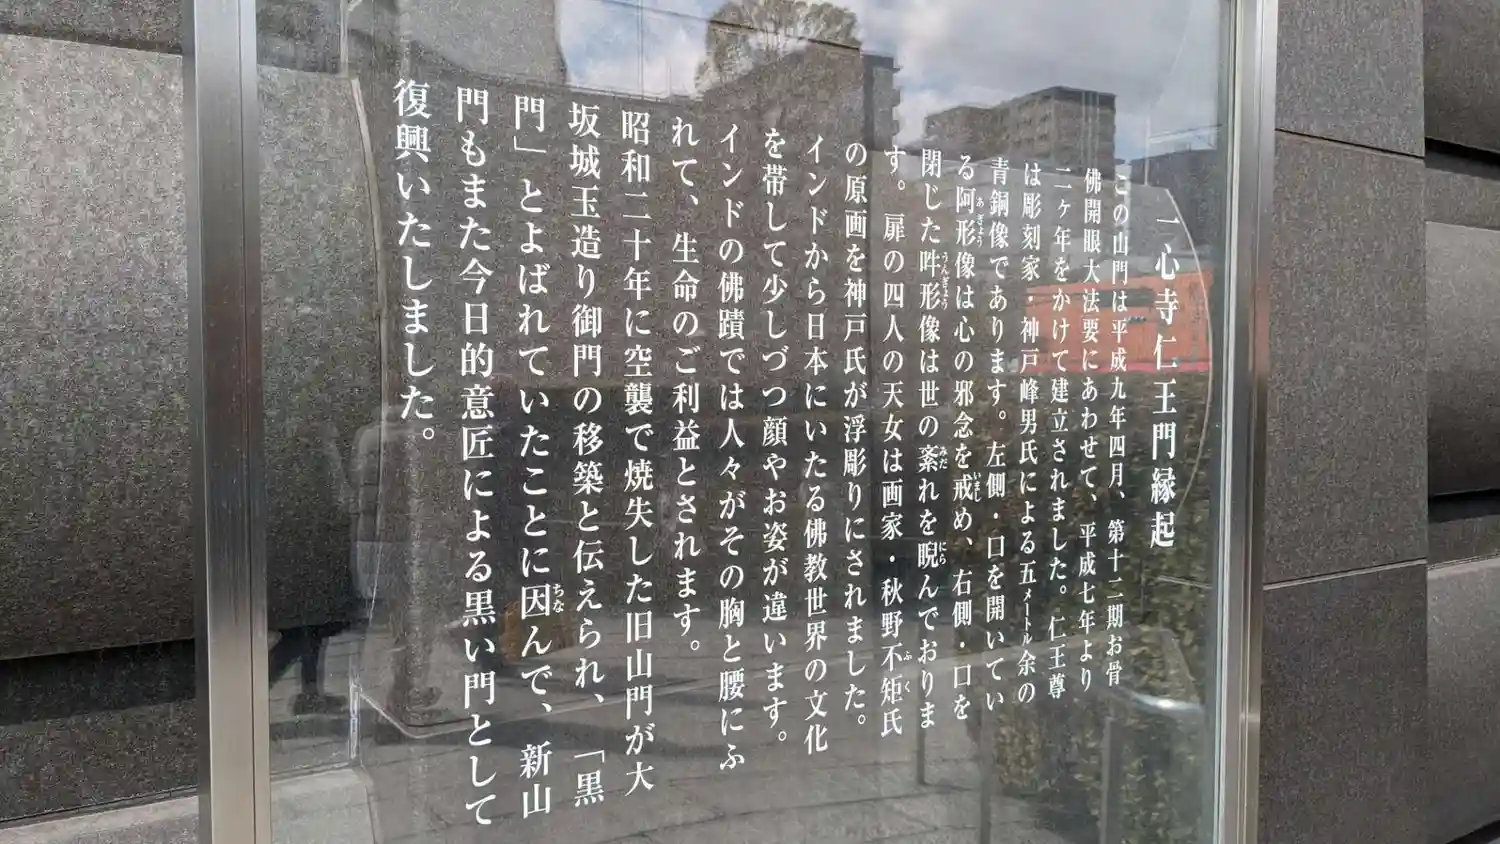 一心寺仁王門縁起
この山門は平成九年四月、第十二期お骨
佛開眼大法要にあわせて、平成七年より
二ヶ年をかけて建立されました。仁王尊
は彫刻家・神戸峰男氏による五メートル余の
青銅像であります。左側・口を開いてい
る阿形像は心の邪念を戒め、右側・口を
閉じた吽形像は世の紊れを睨んでおりま
す。扉の四人の天女は画家・秋野不矩氏
の原画を神戸氏が浮彫りにされました。
インドから日本にいたる佛教世界の文化
を帯して少しづつ顔やお姿が違います。
インドの佛蹟では人々がその胸と腰にふ
れて、生命のご利益とされます。
昭和二十年に空襲で焼失した旧山門が大
坂城玉造り御門の移築と伝えられ、「黒
門」とよばれていたことに因んで、新山
門もまた今日的意匠による黒い門として
復興いたしました。